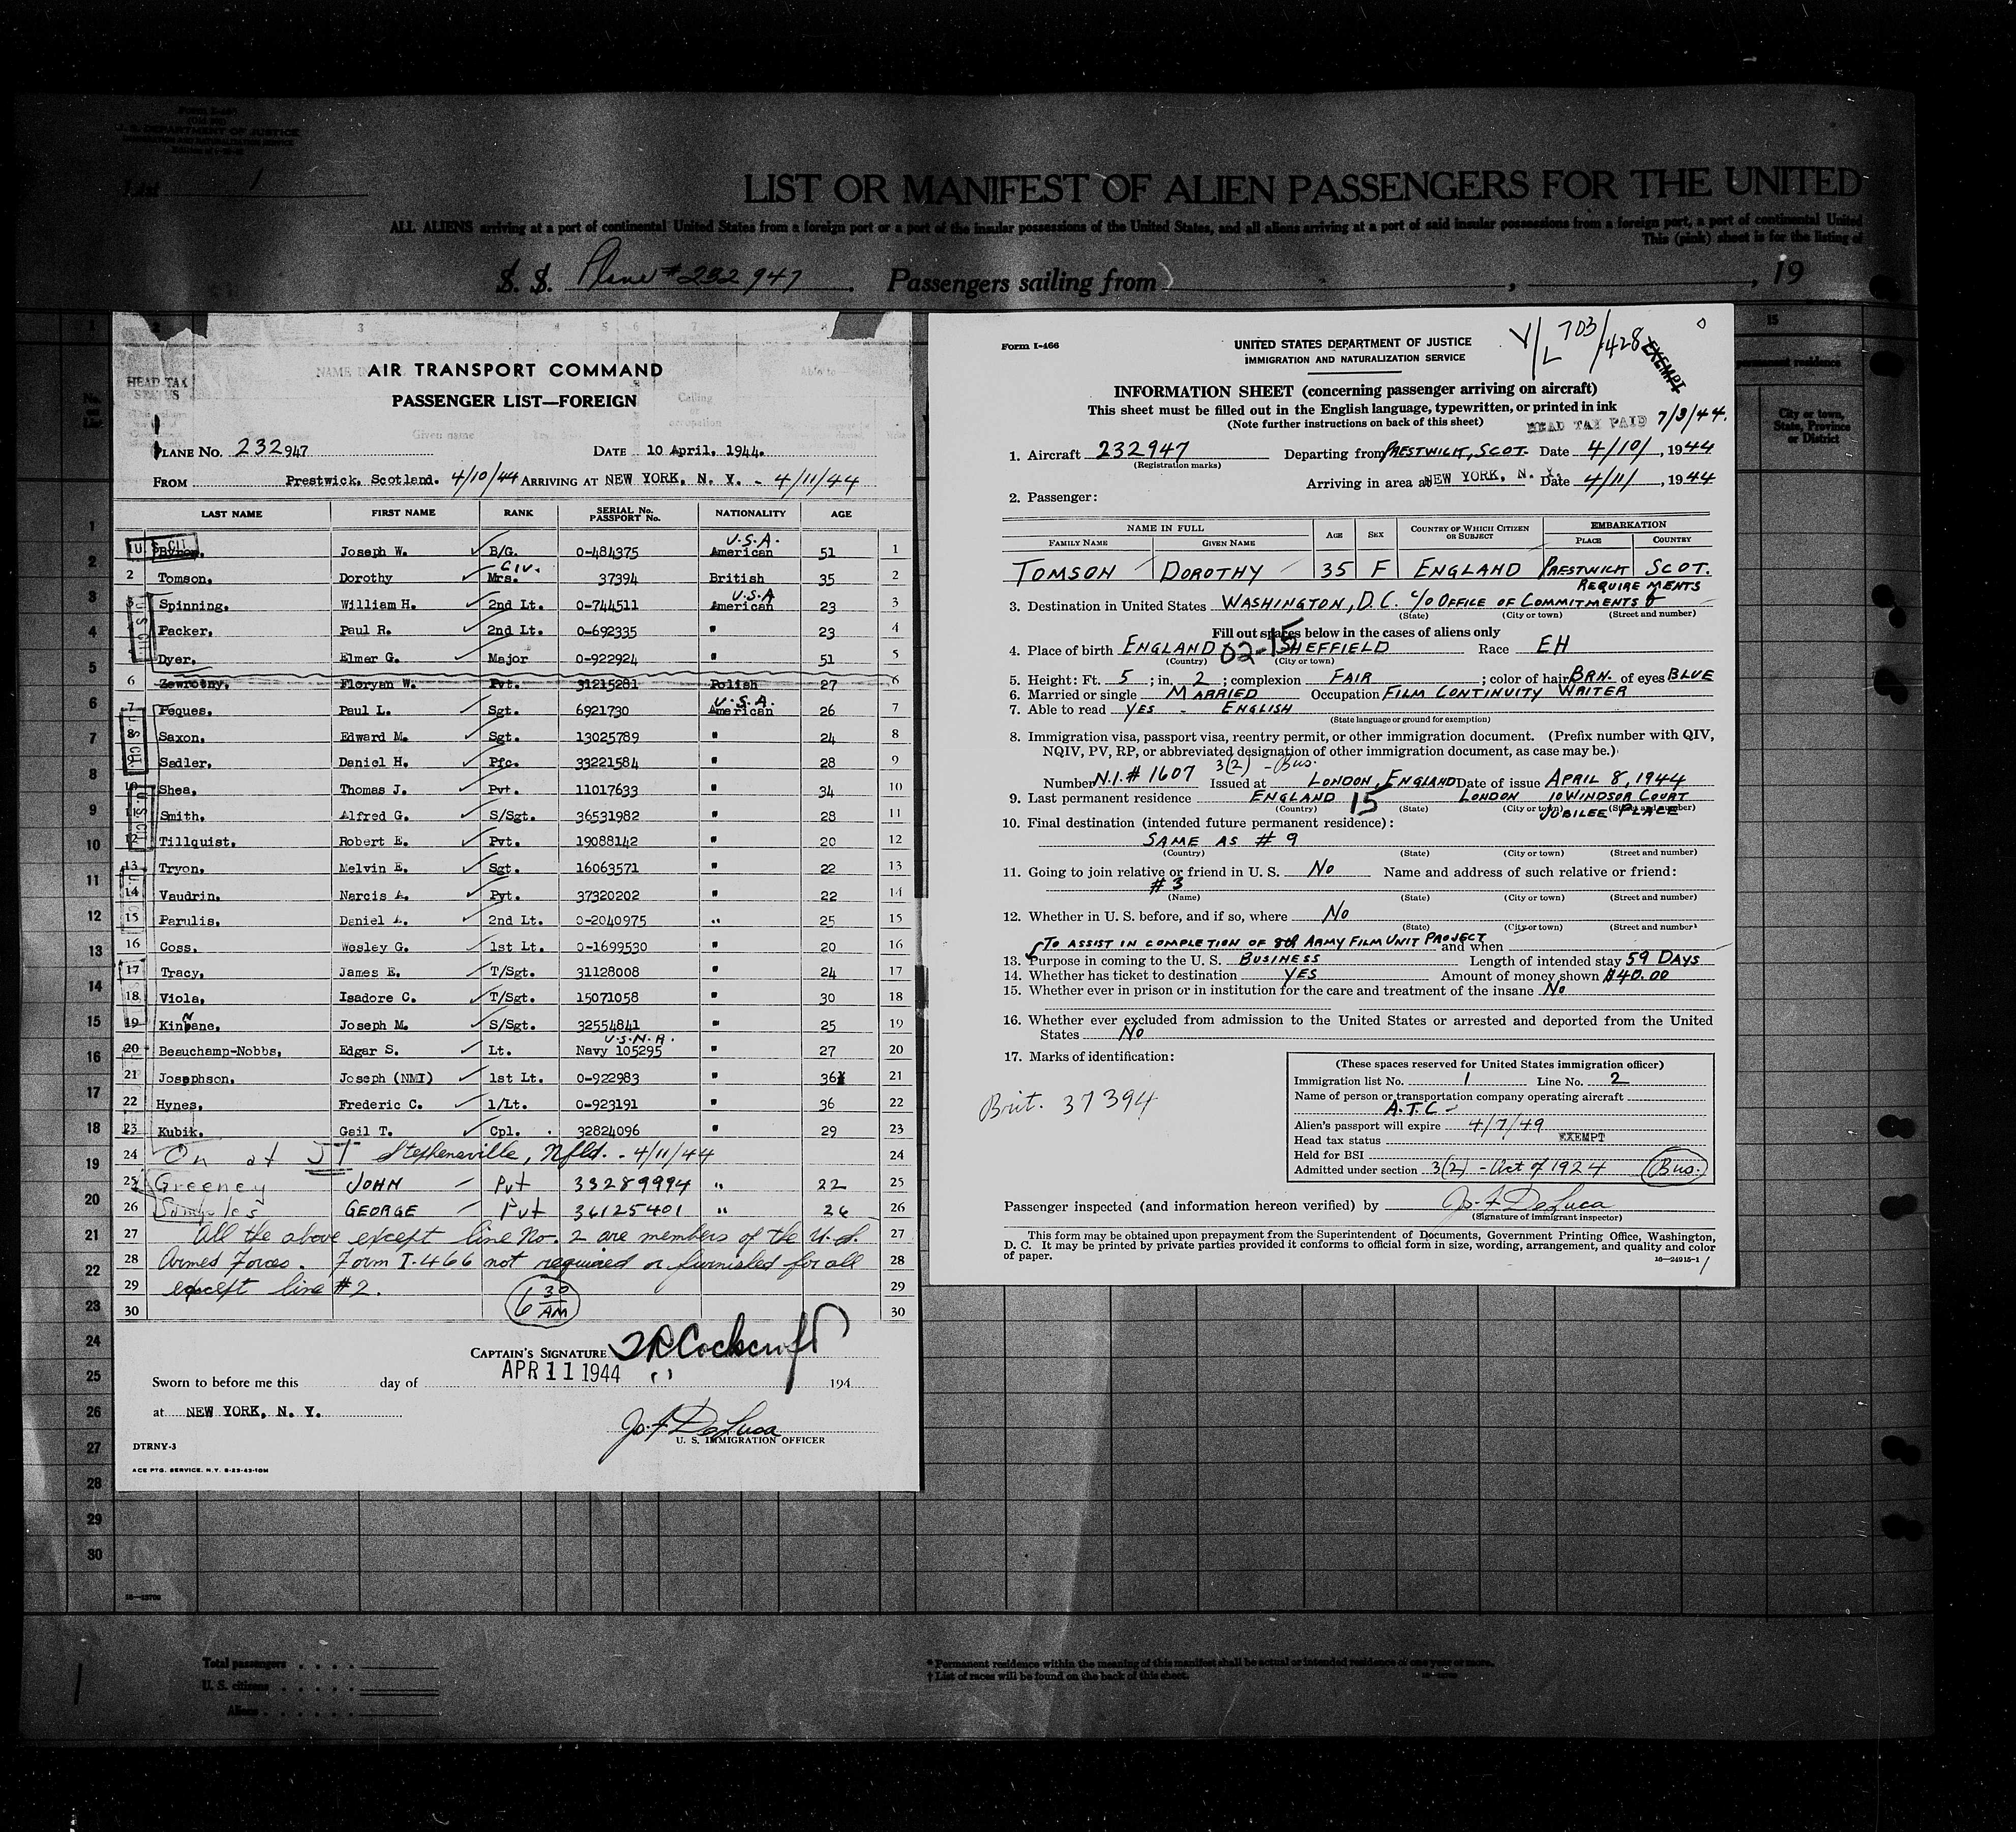 U. S. DEPARTMENT OF JUSTICE
List 1
LIST OR MANIFEST OF ALIEN PASSENGERS FOR THE UNITED
ALL ALIENS arriving at a port of continental United States from a foreign port or a port of the insular possessions of the United States, and all aliens arriving at a port of said insular possessions from a foreign port, a port of continental United
This (pink) sheet is for the listing of
S. S. Plane # 232947 Passengers sailing from , , 19
AIR TRANSPORT COMMAND
PASSENGER LIST—FOREIGN
HEAD-TAX STATUS
PLANE No. 232947 DATE 10 April, 1944.
FROM Prestwick, Scotland. 4/10/44 ARRIVING AT NEW YORK, N. Y. - 4/11/44
LAST NAME FIRST NAME RANK SERIAL No. PASSPORT No. NATIONALITY AGE
1 U.S. CIT. Byron. Joseph W. B/G. 0-484375 U.S.A. American 51 1
2 Tomson. Dorothy Civ. Mrs. 37394 British 35 2
3 Spinning. William H. 2nd Lt. 0-744511 U.S.A American 23 3
4 Packer. Paul R. 2nd Lt. 0-692335 " 23 4
Dyer. Elmer G. Major 0-922924 " 51 5
6 Zewrotny. Floryan W. Pvt. 31215281 Polish 27 6
7 Peques. Paul L. Sgt. 6921730 U.S.A. American 26 7
8 Saxon. Edward M. Sgt. 13025789 " 24 8
Sadler. Daniel H. Pfc. 33221584 " 28 9
10 Shea. Thomas J. Pvt. 11017633 " 34 10
11 Smith. Alfred G. S/Sgt. 36531982 " 28 11
12 Tillquist. Robert E. Pvt. 19088142 " 20 12
13 Tryon. Melvin E. Sgt. 16063571 " 22 13
14 Vaudrin. Narcis A. Pvt. 37320202 " 22 14
15 Parulis. Daniel A. 2nd Lt. 0-2040975 " 25 15
16 Coss. Wesley G. 1st Lt. 0-1699530 " 20 16
17 Tracy. James E. T/Sgt. 31128008 " 24 17
18 Viola. Isadore C. T/Sgt. 15071058 " 30 18
19 Kinnane. Joseph M. S/Sgt. 32554841 " 25 19
20 Beauchamp-Nobbs. Edgar S. Lt. U.S.N.R. Navy 105295 " 27 20
21 Josephson. Joseph (NMI) 1st Lt. 0-922983 " 36 21
22 Hynes. Frederic C. 1/Lt. 0-923191 " 36 22
23 Kubik. Gail T. Cpl. 32824096 " 29 23
24 On at JT Stephensville, Nfld. - 4/11/44 24
25 Greeney JOHN Pvt 33289994 " 22 25
26 Samples GEORGE Pvt 36125401 " 26 26
27 All the above except line No. 2 are members of the U.S. 27
28 Armed Forces. Form I-466 not required or furnished for all 28
29 except line #2. 29
30 6 30 AM 30
CAPTAIN'S SIGNATURE Cockcroft
APR 11 1944
Sworn to before me this day of 194
at NEW YORK, N. Y.
Jo. F. DeLuca
U. S. IMMIGRATION OFFICER
DTRNY-3
ACE PTG. SERVICE. N.Y. 8-23-43-10M
Form I-466
UNITED STATES DEPARTMENT OF JUSTICE
IMMIGRATION AND NATURALIZATION SERVICE
V/L 703/428 EXEMPT
INFORMATION SHEET (concerning passenger arriving on aircraft)
This sheet must be filled out in the English language, typewritten, or printed in ink
(Note further instructions on back of this sheet)
HEAD TAX PAID 7/3/44.
1. Aircraft 232947 Departing from PRESTWICK, SCOT. Date 4/10/, 1944
(Registration marks)
Arriving in area at NEW YORK, N. Y. Date 4/11/, 1944
2. Passenger:
NAME IN FULL AGE SEX COUNTRY OF WHICH CITIZEN OR SUBJECT EMBARKATION
FAMILY NAME GIVEN NAME PLACE COUNTRY
TOMSON DOROTHY 35 F ENGLAND PRESTWICK SCOT.
REQUIREMENTS
3. Destination in United States WASHINGTON, D.C. C/O OFFICE OF COMMITMENTS &
(State) (City or town) (Street and number)
Fill out spaces below in the cases of aliens only
4. Place of birth ENGLAND 02-15 SHEFFIELD Race EH
(Country) (City or town)
5. Height: Ft. 5; in. 2; complexion FAIR; color of hair BRN. of eyes BLUE
6. Married or single MARRIED Occupation FILM CONTINUITY WRITER
7. Able to read YES - ENGLISH
(State language or ground for exemption)
8. Immigration visa, passport visa, reentry permit, or other immigration document. (Prefix number with QIV,
NQIV, PV, RP, or abbreviated designation of other immigration document, as case may be.)
3(2) - Bus.
Number N.I. # 1607 Issued at LONDON, ENGLAND Date of issue APRIL 8, 1944
9. Last permanent residence ENGLAND 15 LONDON 10 WINDSOR COURT
(Country) (State) (City or town) (Street and number)
JUBILEE PLACE
10. Final destination (intended future permanent residence):
SAME AS # 9
(Country) (State) (City or town) (Street and number)
11. Going to join relative or friend in U. S. No Name and address of such relative or friend:
# 3
(Name) (State) (City or town) (Street and number)
12. Whether in U. S. before, and if so, where No
(State) (City or town) (Street and number)
TO ASSIST IN COMPLETION OF 8th ARMY FILM UNIT PROJECT and when
13. Purpose in coming to the U. S. BUSINESS Length of intended stay 59 DAYS
14. Whether has ticket to destination YES Amount of money shown $40.00
15. Whether ever in prison or in institution for the care and treatment of the insane No
16. Whether ever excluded from admission to the United States or arrested and deported from the United
States No
17. Marks of identification:
Brit. 37394
(These spaces reserved for United States immigration officer)
Immigration list No. 1 Line No. 2
Name of person or transportation company operating aircraft
A.T.C-
Alien's passport will expire 4/7/49
Head tax status EXEMPT
Held for BSI
Admitted under section 3(2) - Act of 1924 (Bus.)
Passenger inspected (and information hereon verified) by Jo. F. DeLuca
(Signature of immigrant inspector)
This form may be obtained upon prepayment from the Superintendent of Documents, Government Printing Office, Washington,
D. C. It may be printed by private parties provided it conforms to official form in size, wording, arrangement, and quality and color
of paper.
16-24915-1
15
permanent residence
City or town, State, Province or District
1
2
3
4
5
6
7
8
9
10
11
12
13
14
15
16
17
18
19
20
21
22
23
24
25
26
27
28
29
30
Total passengers
U. S. citizens
Aliens
* Permanent residence within the meaning of this manifest shall be actual or intended residence of one year or more.
† List of races will be found on the back of this sheet.